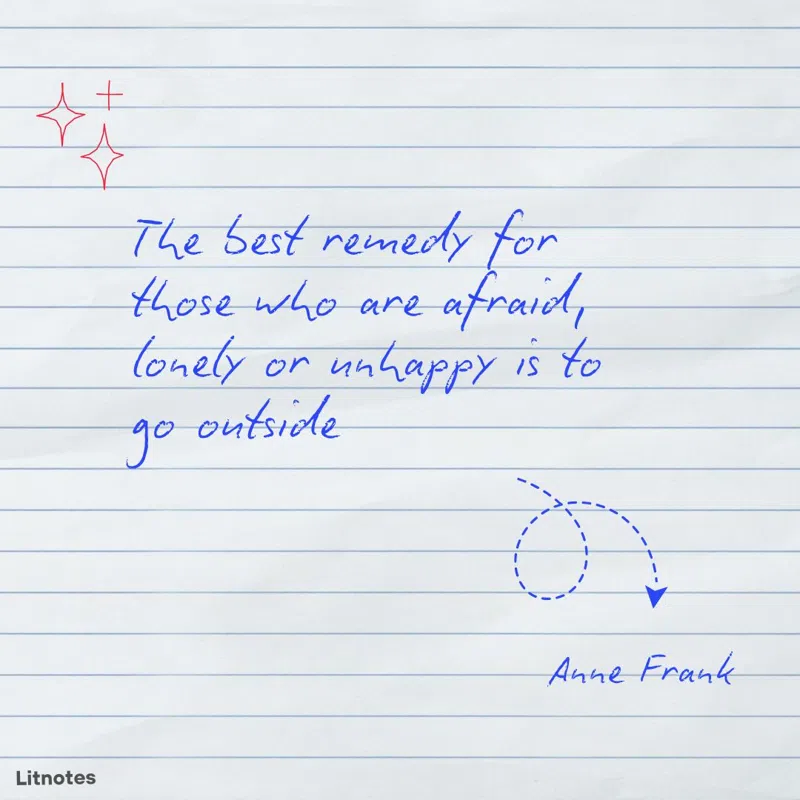 The best remedy for
those who are afraid,
lonely or unhappy is to
go outside
Anne Frank
Litnotes